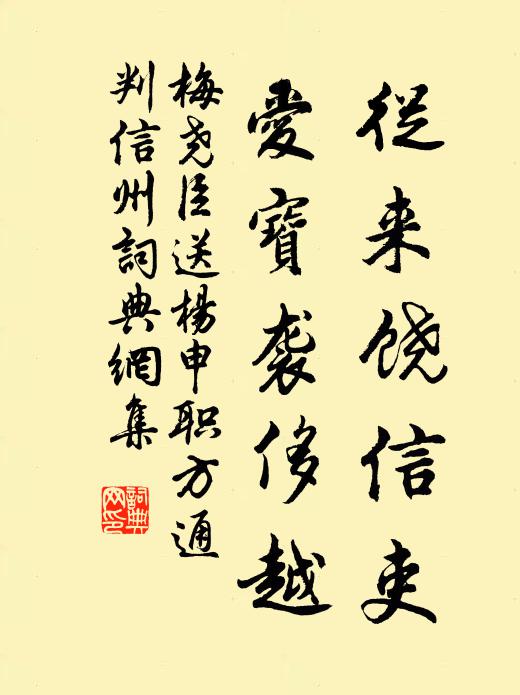 從来饶信吏
愛寶袭侈越
梅尧臣送楊申职方通
判信州詞典網集
詞典网印